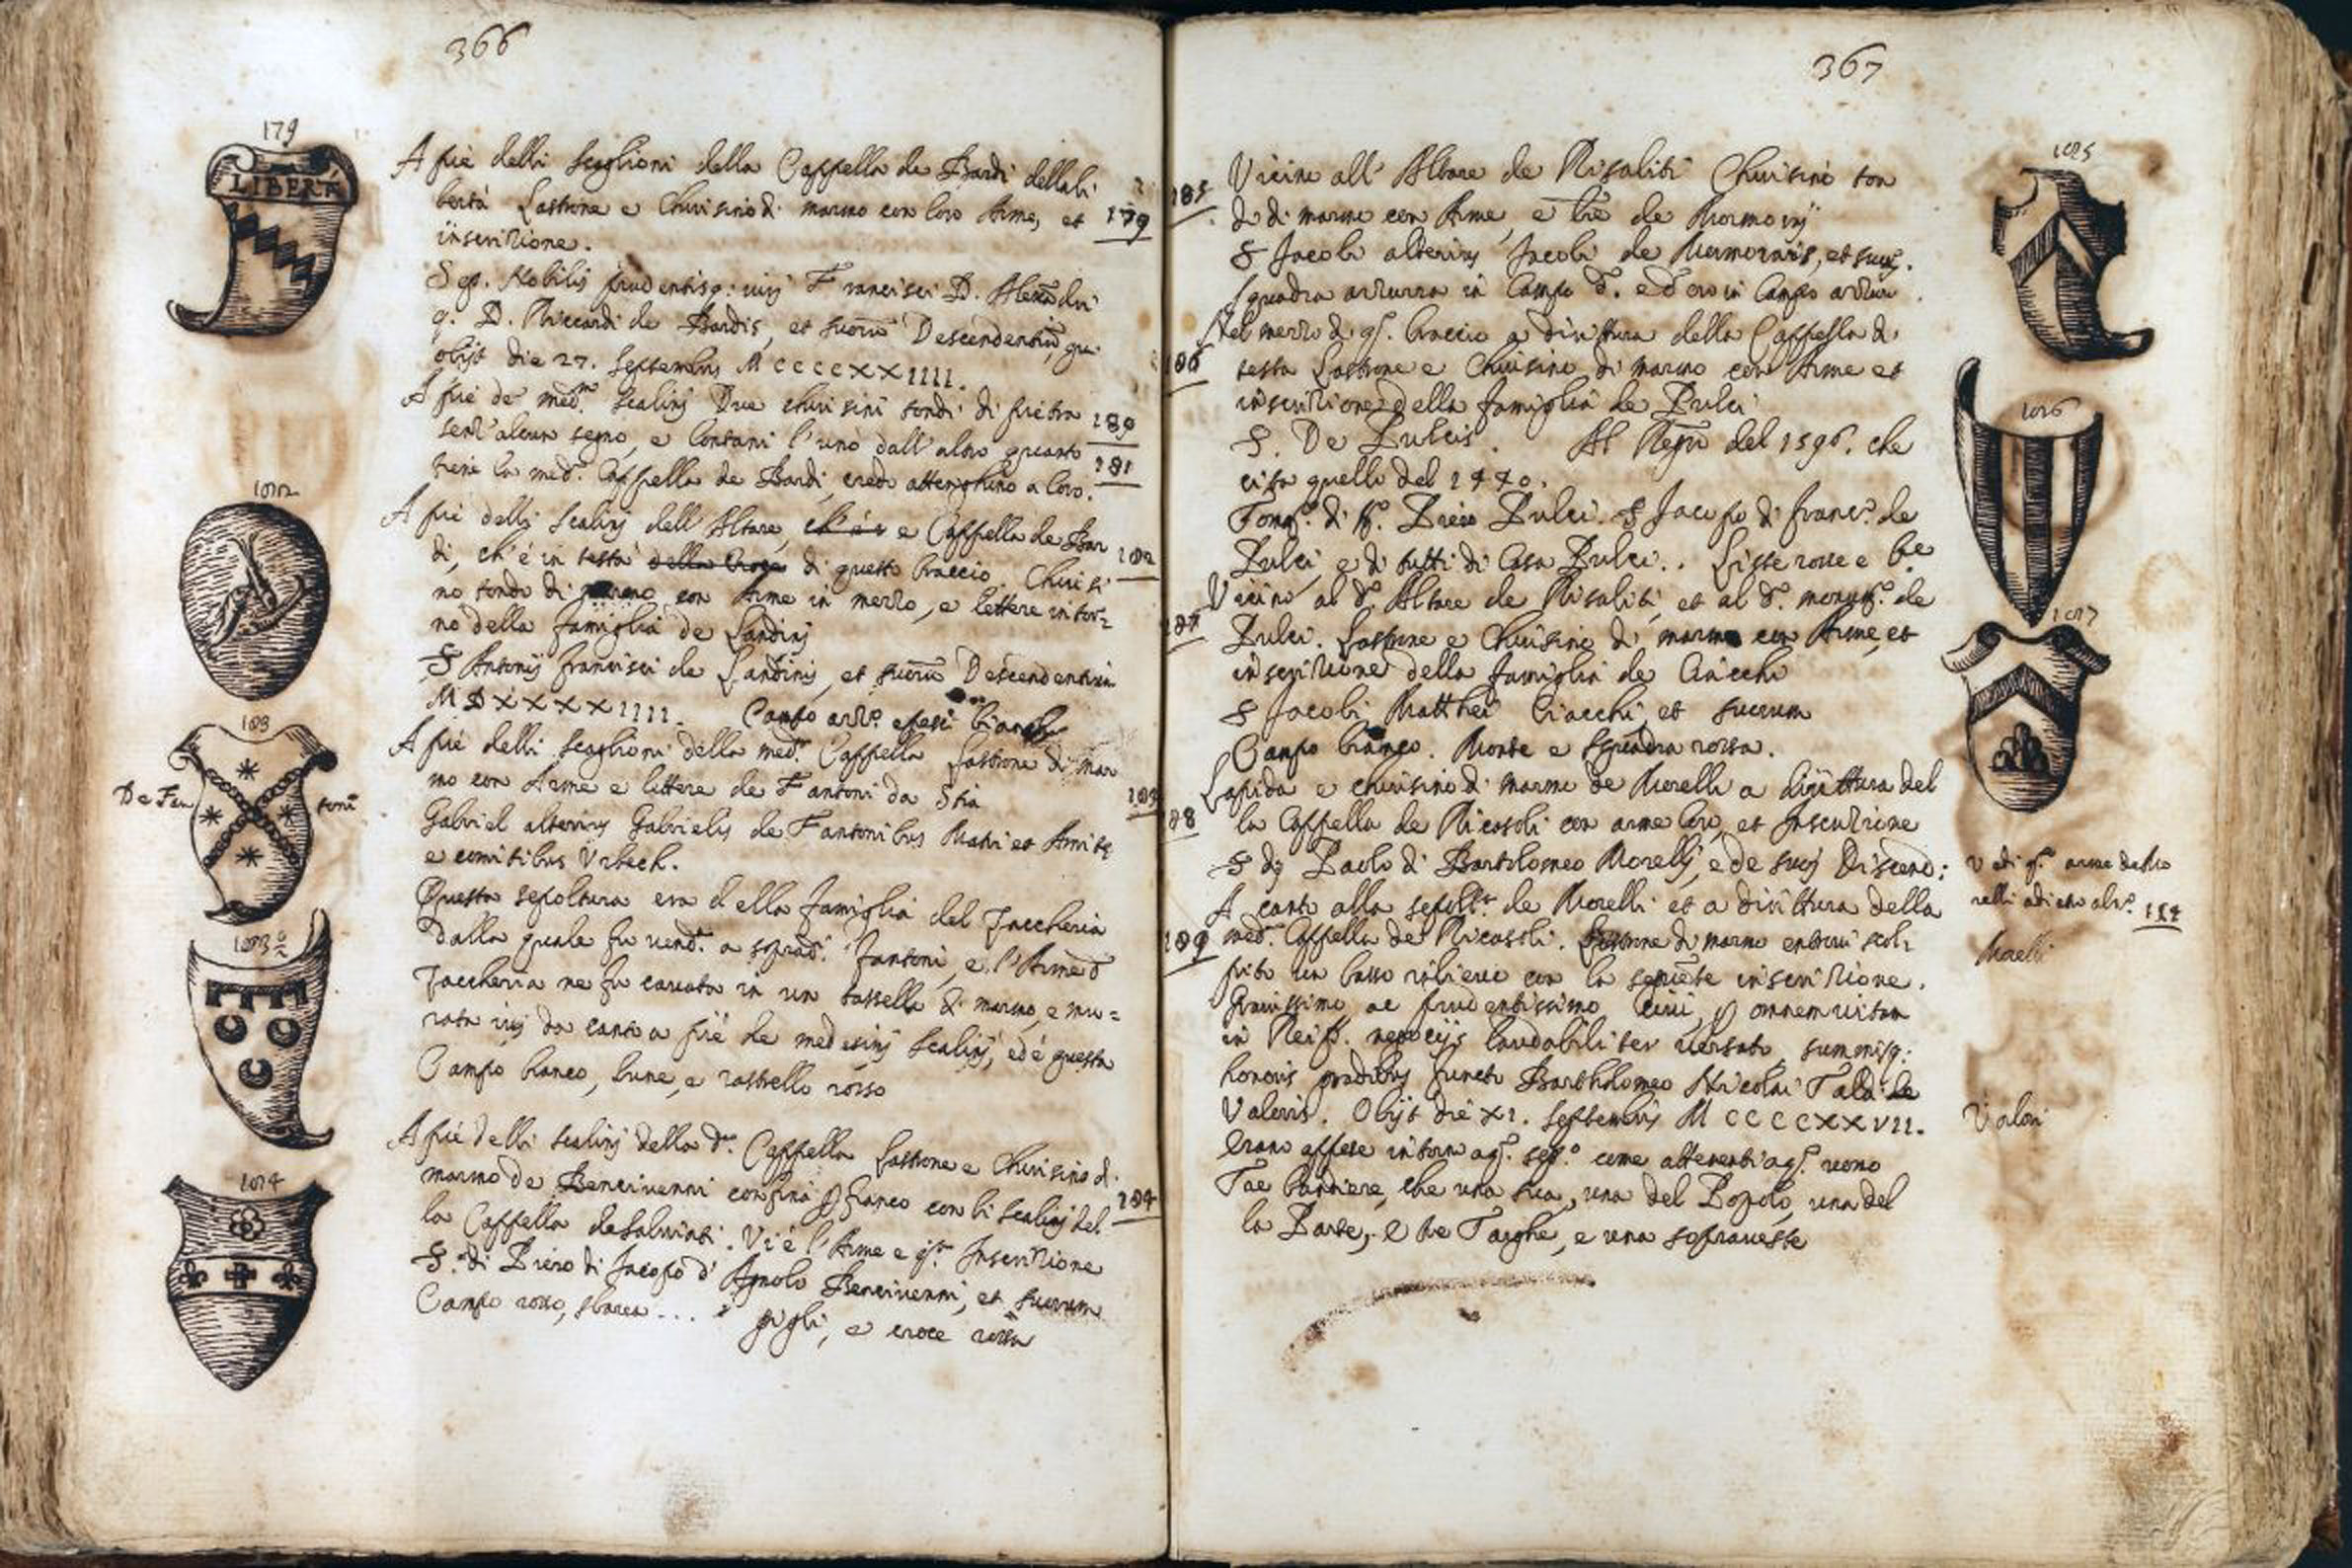 366
179
LIBERTÀ
A piè delli scaglioni della Cappella de Bardi della li
bertà Lastrone e Chiusino di marmo con loro Arme, et 179
inscrizione.
Sep. Nobilis prudentisq: viri Francisci D. Alexandri
q. D. Riccardi de Bardis, et suorū Descendentiū, qui
obijt die 27. Septembris MCCCCXXIIII.
A piè de med.mi scalinj Due chiusini tondi di pietra 180
senz'alcun segno, e lontani l'uno dall'altro quanto 181
tiene la med.a Cappella de Bardi, credo attenghino a loro.
182
A piè dellj scalinj dell'Altare, ch'é e Cappella de Bar
di, ch'é in testa della Croce di questo braccio. Chiusi 182
no tondo di marmo con Arme in mezzo, e lettere intor=
no della famiglia de Landinj
S Antonij Francisci de Landinis, et suorū Descendentium
MDXXXXIIII. Campo azz.o pesci bianchi
183
A piè delli scaglioni della med.a Cappella Lastrone di mar
mo con Arme e lettere de Fantoni da Stia 183
De Fan toni
Gabriel alterius Gabrielis de Fantonibus Matri et Amitę
e comitibus Urbech.
Questa sepoltura era della famiglia del Zaccheria
dalla quale fu vend.a a soprad.i Fantoni, e l'Arme d
Zaccheria ne fu cavata in un tassello di marmo, e mu=
rata ivi da canto a piè de medesinj scalinj, ed é questa
Campo bianco, lune, e rastrello rosso
183
184
A piè delli scalinj della d.a Cappella Lastrone e Chiusino di
marmo de Bencivenni confina p fianco con li scalinj del 184
la Cappella de Salviati. Vi é l'Arme e q.sta Inscrizione
S. di Piero di Jacopo d'Agnolo Bencivenni, et suorum
Campo rosso, sbarra ... gigli, e croce rossa
367
185
Vicino all'Altare de Risaliti Chiusino ton
185 do di marmo con Arme, e lre de Mormoraj
S Jacobi alterius Jacobi de Mormorariis, et suor.
squadra azzurra in Campo d. ed oro in Campo azzurro
Nel mezzo di q.o braccio a dirittura della Cappella di
186 testa Lastrone e Chiusino di marmo con Arme et
186
inscrizione della famiglia de Pulci
S. De Pulcis. Al Regro del 1596. che
cita quello del 1440.
di Piero Pulci. S Jacopo di Franc.o de
Pulci, e di tutti di Casa Pulci. Liste rosse e b.e
187
Vicino al d.o Altare de Risaliti, et al d.o monum.o de
187 Pulci. Lastrone e Chiusino di marmo con Arme, et
inscrizione della famiglia de Ciacchi
S Jacobi Matthei Ciacchi et suorum
Campo bianco. Monte e squadra rossa.
Lapida e chiusino di marmo de Morelli a dirittura del
188 la Cappella de Ricasoli con arme loro, et Inscrizione
S dj Paolo di Bartolomeo Morellj, e de suoj Discend:
vedi q.a arme de Mo
relli adietro al n.o 154
A canto alla sepolt.a de Morelli et a dirittura della
189 med.a Cappella de Ricasoli. Lastrone di marmo entrovi scol=
Morelli
pito un basso rilievo con la seguēte inscrizione.
Gravissimo ac prudentissimo Civi, p omnem vitam
in Reip. negocijs laudabiliter versato, summisq:
honoris gradibus functo Bartholomeo Nicolai Taldi de
Valoris. Obijt die XI. Septembris MCCCCXXVII.
Valori
Erano appese intorno a q.o sep.o come attenenti a q.o uomo
Tre bandiere, che una sua, una del Popolo, una del
la Parte, e tre Targhe, e una sopraveste